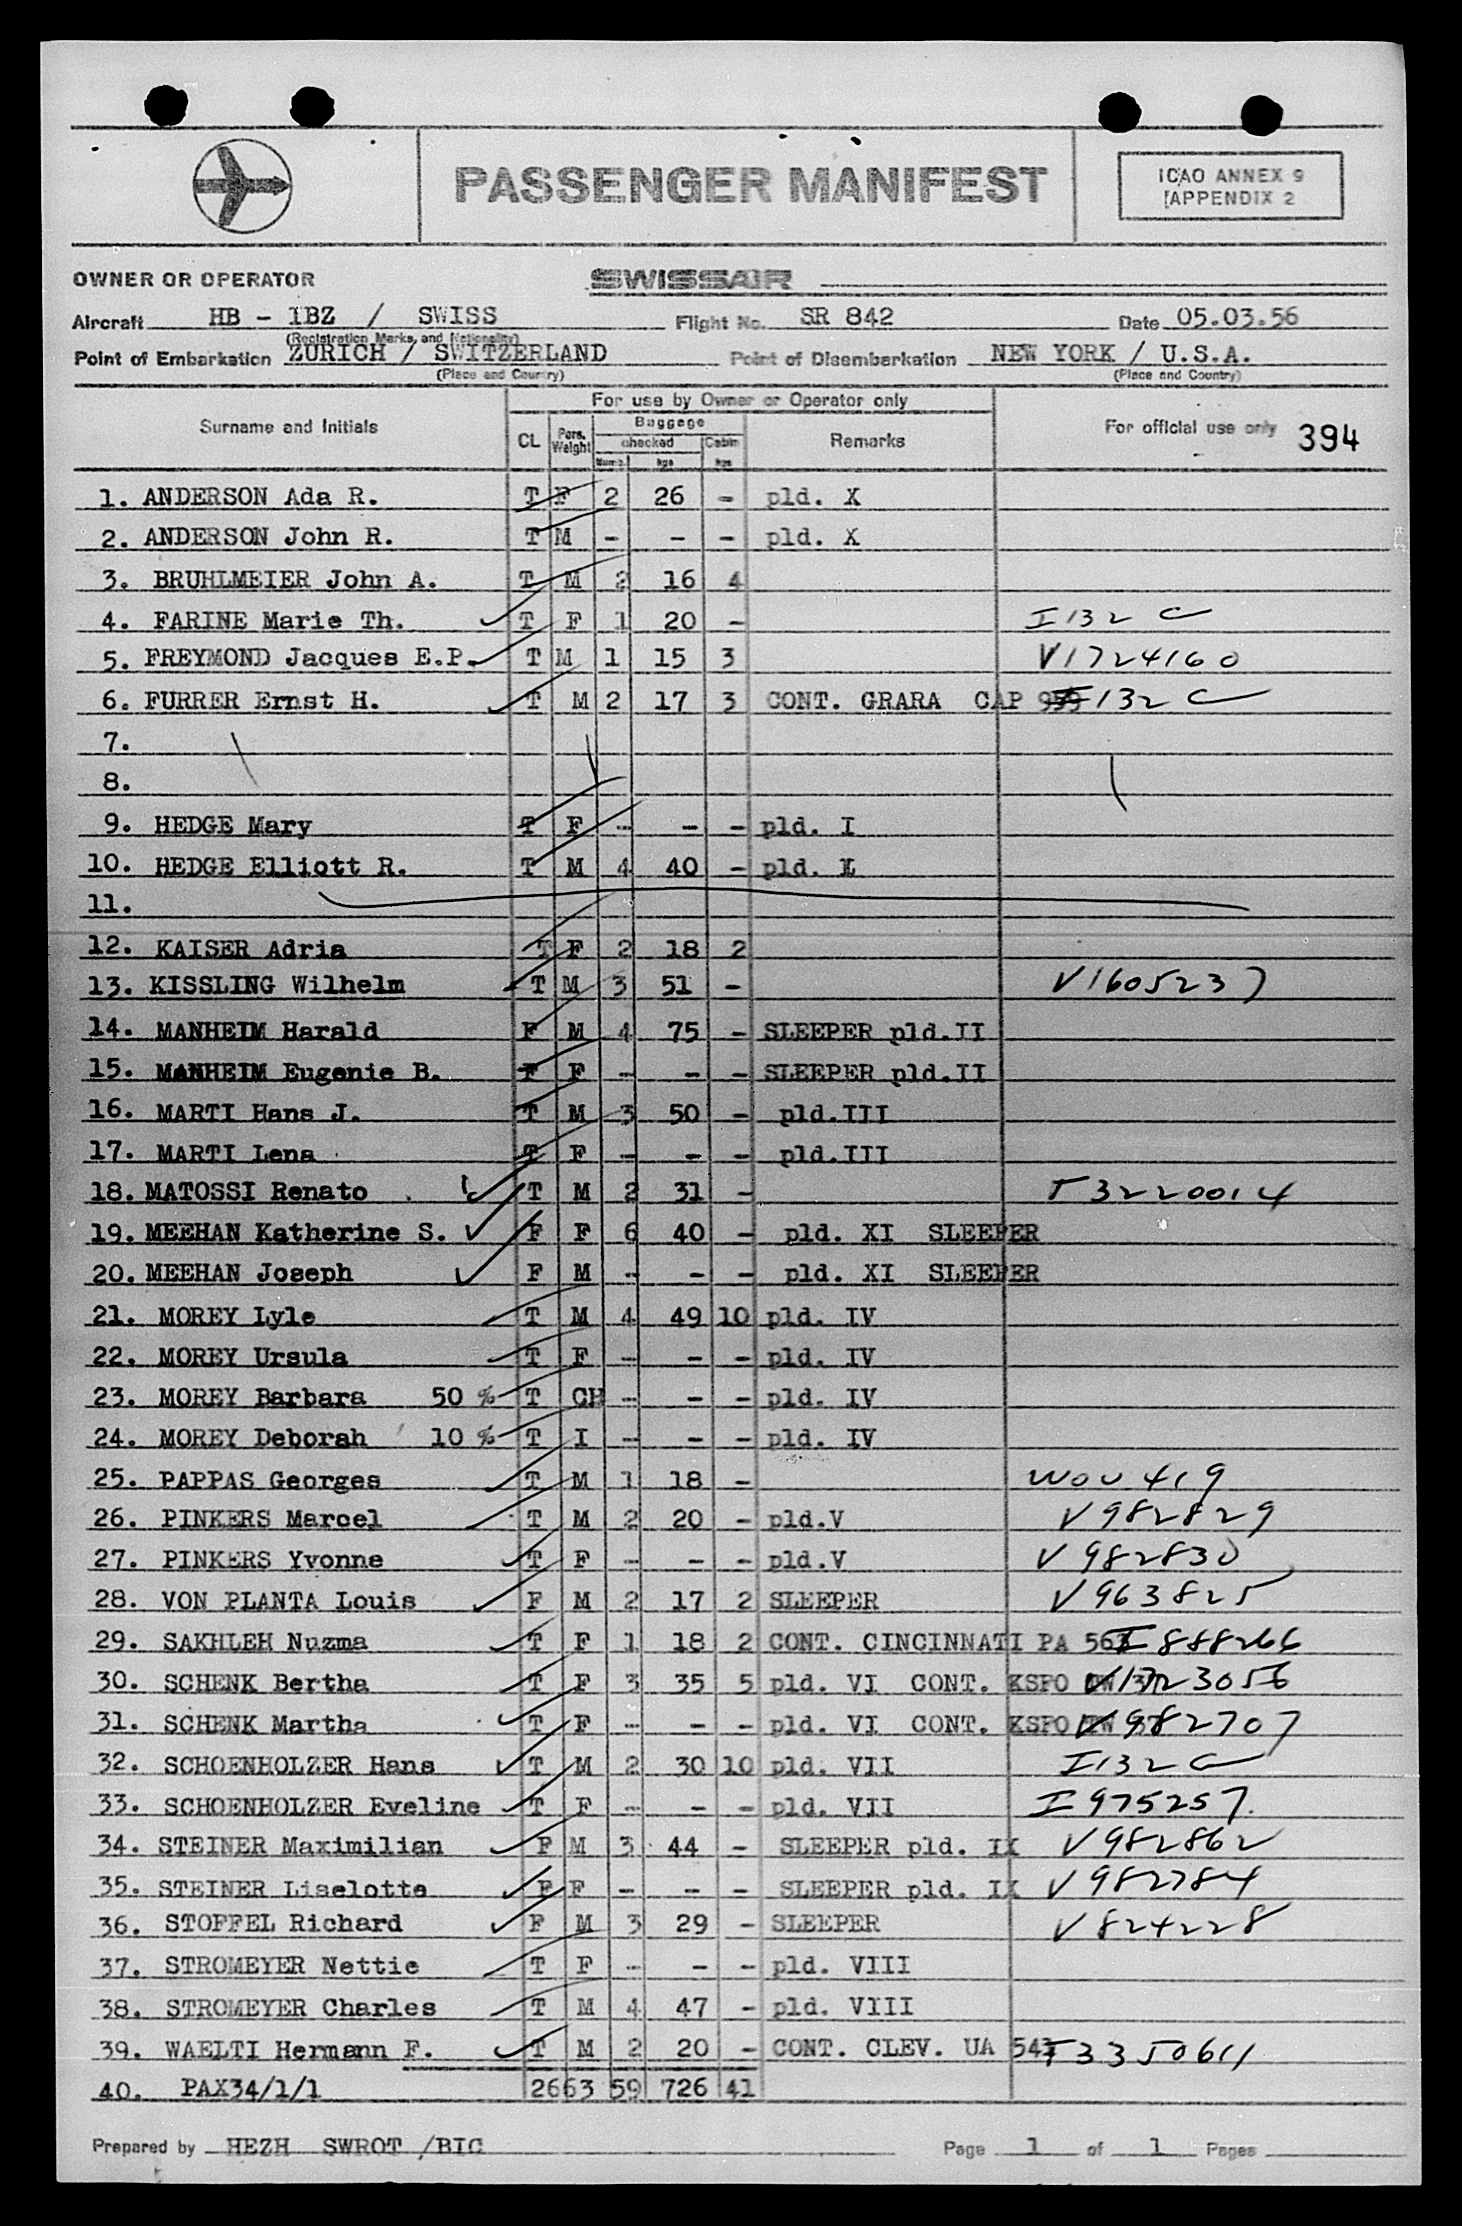 PASSENGER MANIFEST
ICAO ANNEX 9
APPENDIX 2
OWNER OR OPERATOR SWISSAIR
Aircraft HB - IBZ / SWISS Flight No. SR 842 Date 05.03.56
(Registration Marks and Nationality)
Point of Embarkation ZURICH / SWITZERLAND Point of Disembarkation NEW YORK / U.S.A.
(Place and Country) (Place and Country)
For use by Owner or Operator only
Surname and Initials CL Pers. Weight Baggage checked Numb. kgs Cabin kgs Remarks For official use only 394
1. ANDERSON Ada R. T F 2 26 - pld. X
2. ANDERSON John R. T M - - - pld. X
3. BRUHLMEIER John A. T M 2 16 4
4. FARINE Marie Th. T F 1 20 - I 132 C
5. FREYMOND Jacques E.P. T M 1 15 3 V1724160
6. FURRER Ernst H. T M 2 17 3 CONT. GRARA CAP 959 I 132 C
7.
8.
9. HEDGE Mary T F - - - pld. I
10. HEDGE Elliott R. T M 4 40 - pld. I
11.
12. KAISER Adria T F 2 18 2
13. KISSLING Wilhelm T M 3 51 - V1605237
14. MANHEIM Harald F M 4 75 - SLEEPER pld.II
15. MANHEIM Eugenie B. F F - - - SLEEPER pld.II
16. MARTI Hans J. T M 3 50 - pld.III
17. MARTI Lena T F - - - pld.III
18. MATOSSI Renato T M 2 31 - T 3220014
19. MEEHAN Katherine S. F F 6 40 - pld. XI SLEEPER
20. MEEHAN Joseph F M - - - pld. XI SLEEPER
21. MOREY Lyle T M 4 49 10 pld. IV
22. MOREY Ursula T F - - - pld. IV
23. MOREY Barbara 50 % T CH - - - pld. IV
24. MOREY Deborah 10 % T I - - - pld. IV
25. PAPPAS Georges T M 1 18 - WOU 419
26. PINKERS Marcel T M 2 20 - pld.V V982829
27. PINKERS Yvonne T F - - - pld.V V 982830
28. VON PLANTA Louis F M 2 17 2 SLEEPER V963825
29. SAKHLEH Nuzma T F 1 18 2 CONT. CINCINNATI PA I 888266
30. SCHENK Bertha T F 3 35 5 pld. VI CONT. KSFO V1723056
31. SCHENK Martha T F - - - pld. VI CONT. KSFO V982707
32. SCHOENHOLZER Hans T M 2 30 10 pld. VII I 132 C
33. SCHOENHOLZER Eveline T F - - - pld. VII I 975257
34. STEINER Maximilian F M 3 44 - SLEEPER pld. IX V982862
35. STEINER Liselotte F F - - - SLEEPER pld. IX V982784
36. STOFFEL Richard F M 3 29 - SLEEPER V824228
37. STROMEYER Nettie T F - - - pld. VIII
38. STROMEYER Charles T M 4 47 - pld. VIII
39. WAELTI Hermann F. T M 2 20 - CONT. CLEV. UA 543 T3350611
40. PAX34/1/1 2663 59 726 41
Prepared by HEZH SWROT /BIC Page 1 of 1 Pages